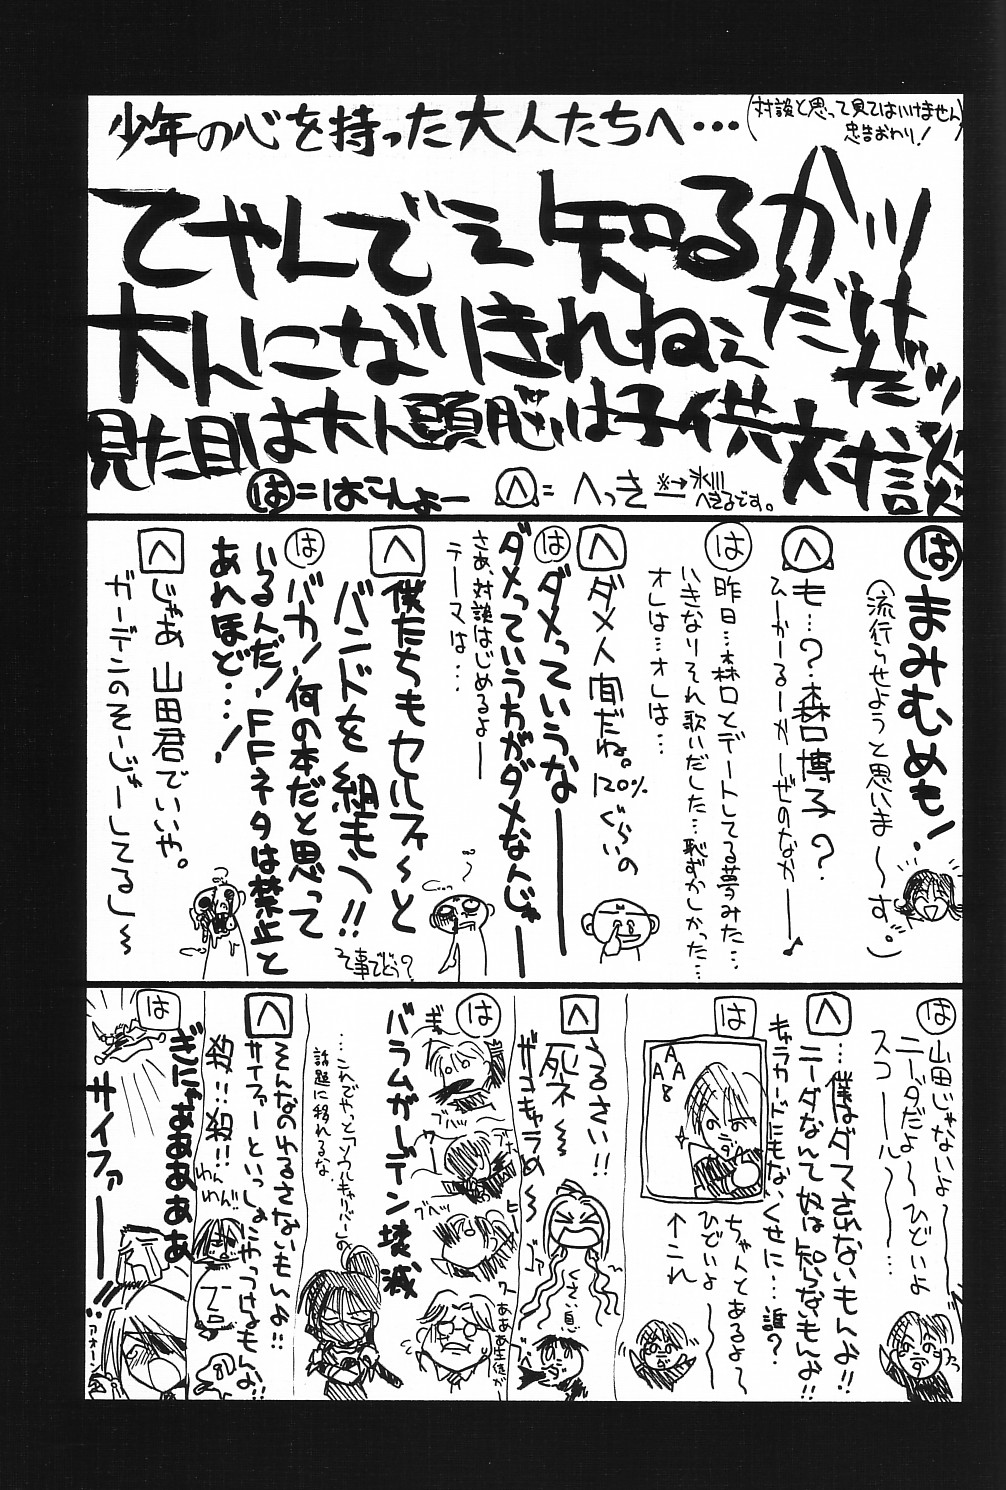 少年の心を持った大人たちへ・・・
(対談と思って見てはいけません
忠告おわり!)
てやんでぇ知るかッ
大人になりきれねぇ
だけだッ
見た目は大人頭脳は子供対談
は=はこんよー
へ=へっき
※→氷川
へきるです。
は まみむめも!
(流行らせようと思いま〜す。)
へ も…?森口博子?
ひーかーるーかーぜのなかー♪
は 昨日…森口とデートしてる夢みた…
いきなりそれ歌いだした…恥ずかしかった…
オレは…オレは…
へ ダメ人間だね。120%ぐらいの
は ダメっていうなー
ダメっていう方がダメなんじゃー
さあ、対談はじめるよー
テーマは…
へ 僕たちもセルフィ〜と
バンドを組もう!!
て事でどう?
は バカ!何の本だと思って
いるんだ!FFネタは禁止と
あれほど…!
へ じゃあ山田君でいいや。
ガーデンのそーじゃーしてるし〜
は 山田じゃないよ〜
ニーダだよ〜ひどいよ
スコール〜…
へ …僕はダマされないもんよ!!
ニーダなんて奴は知らないもんよ!!
キャラカードにもないくせに…誰?
は ちゃんとあるよ〜
ひどいよ〜
↑コレ
A
A A
8
へ うるさい!!
死ネ〜
ザコキャラめ〜
くさい息
は バラムガーデン壊滅
ぎゃー
ブヘッ
ワーあああ生徒が
…これでやっとソウルキャリバーの
話題に移れるな
へ そんなのゆるさないもんよ!!
サイファーといっしょにやっつけるもんよ!!
殺…殺!!
わんわんっ
は ぎにゃあぁぁぁぁ
サイファーーー!!
アオーン